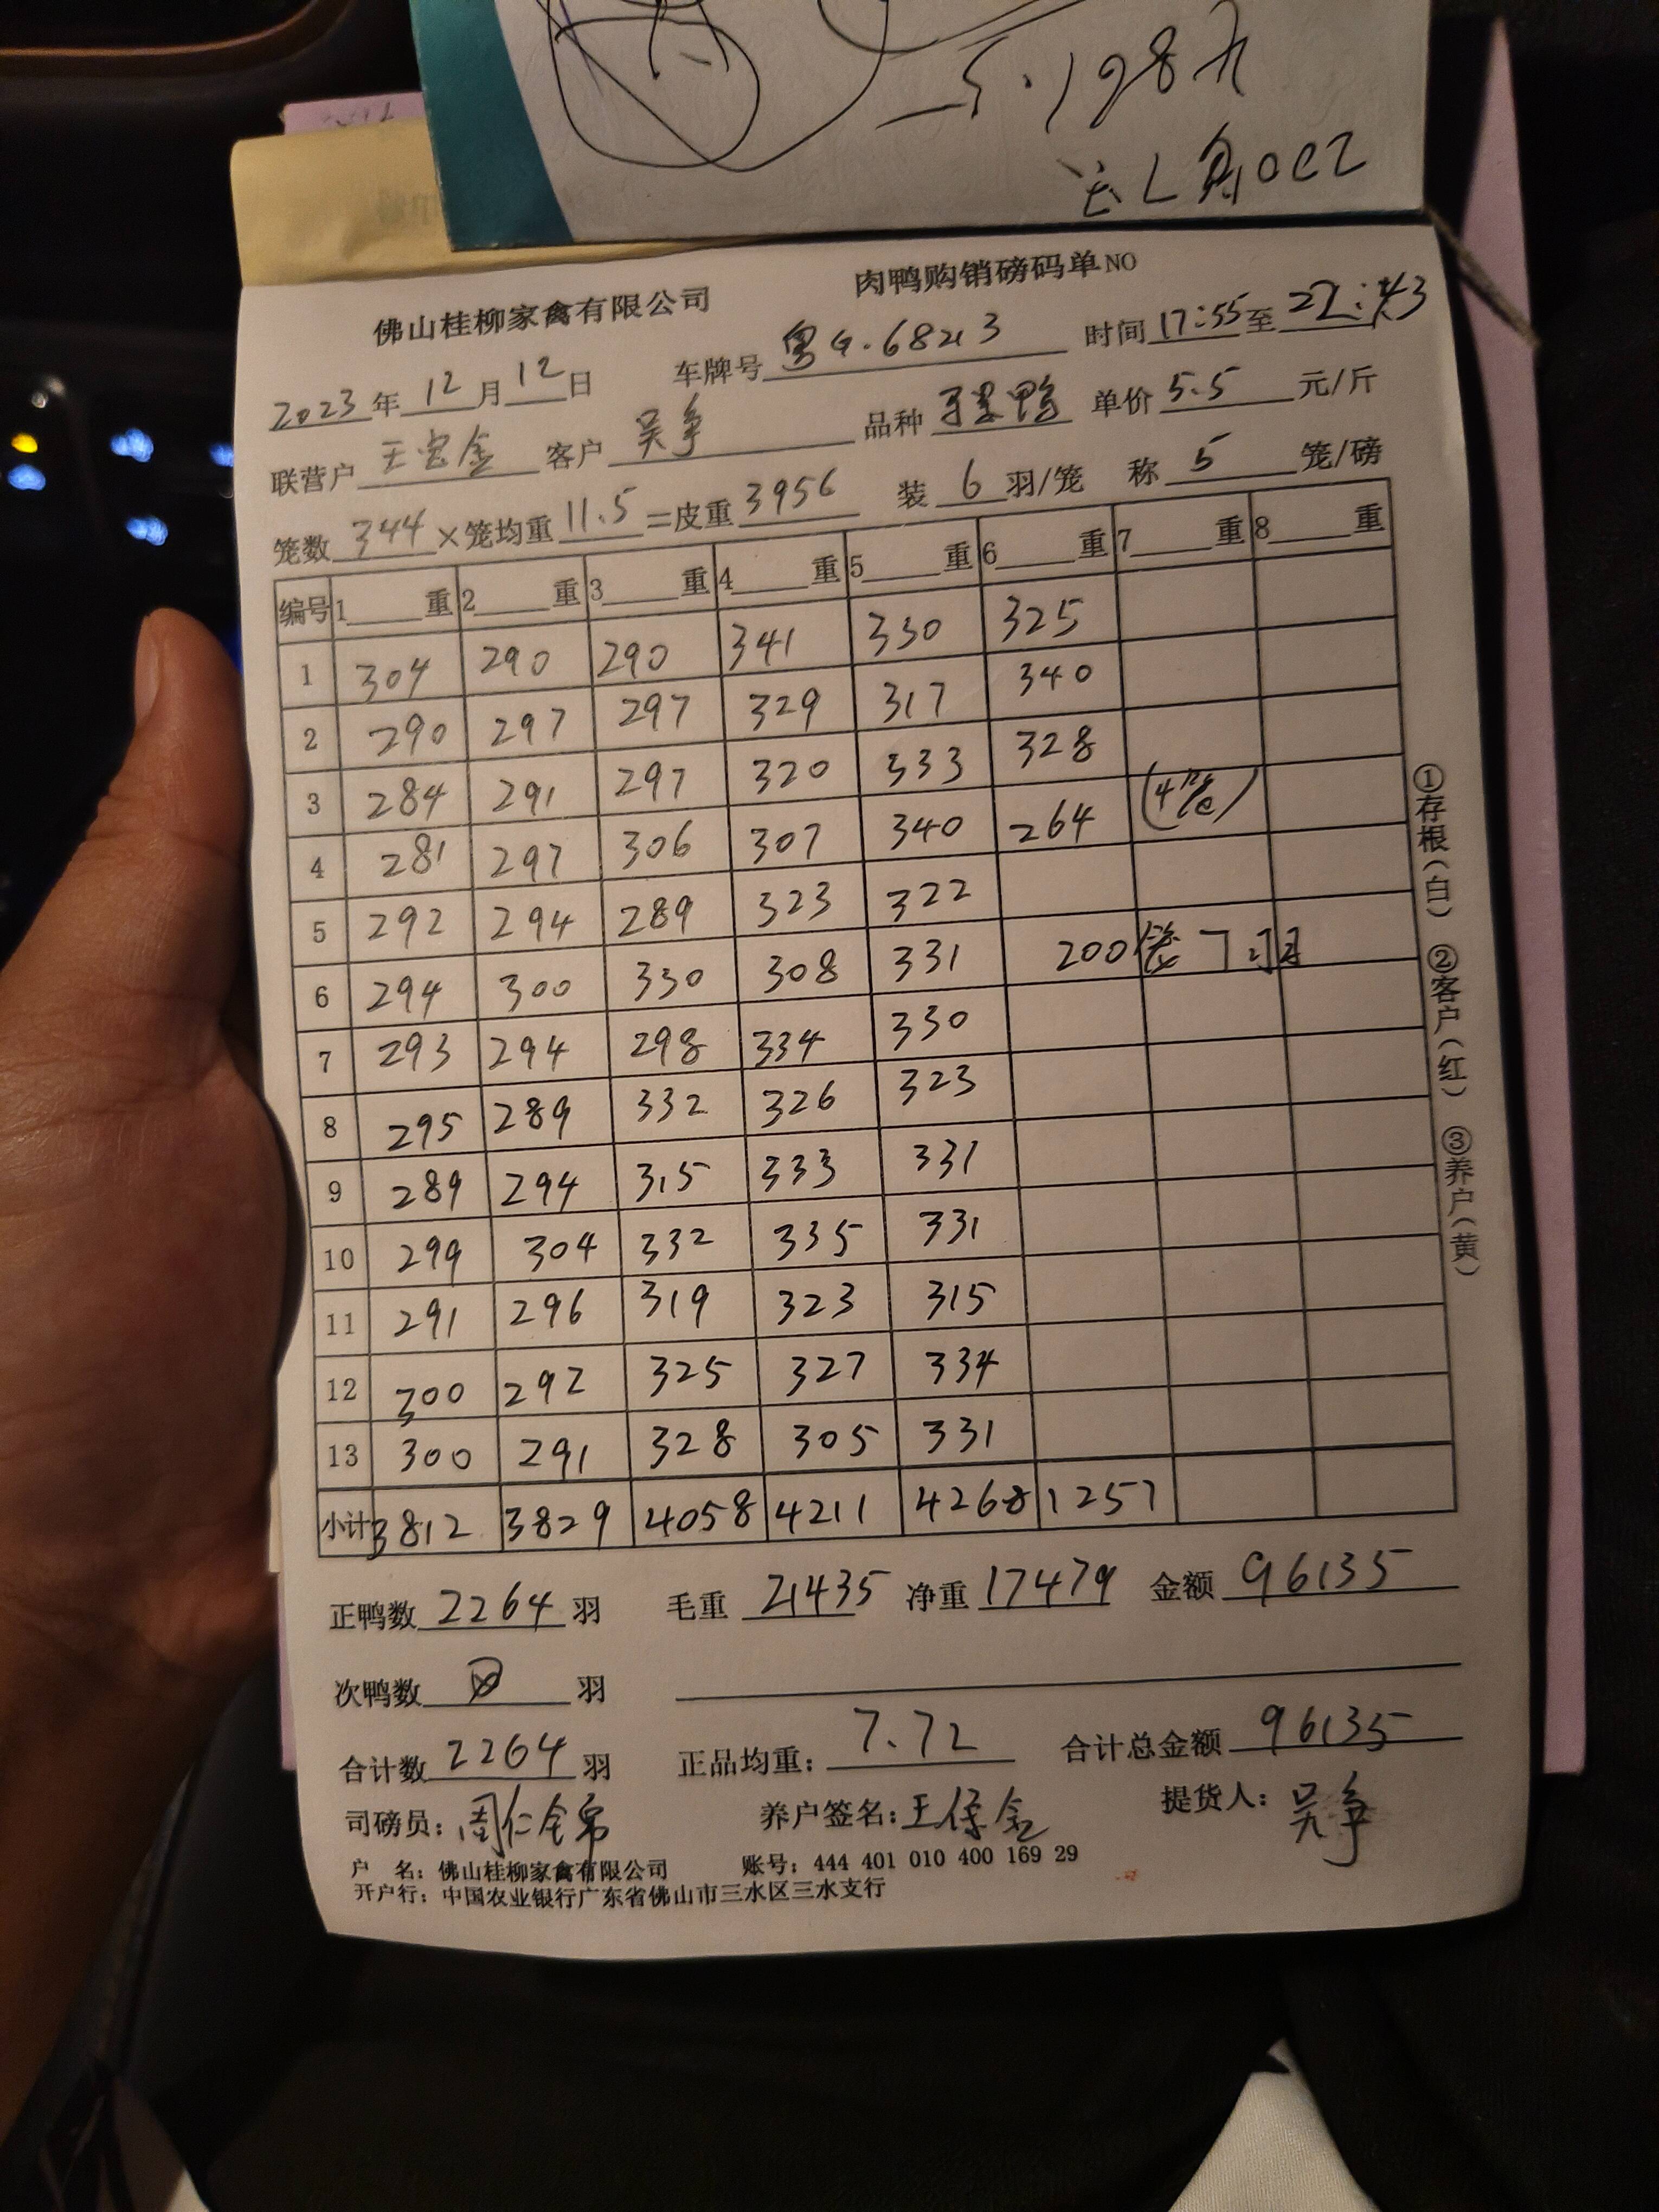 5.198元
佛山桂柳家禽有限公司 肉鸭购销磅码单NO
2023年12月12日 车牌号 粤G.68213 时间17:55至22:
联营户 王宝金 客户 吴争 品种 鸭 单价5.5 元/斤
笼数344×笼均重11.5=皮重3956 装6羽/笼 称5笼/磅
编号 1 重 2 重 3 重 4 重 5 重 6 重 7 重 8 重
1 304 290 290 341 330 325
2 290 297 297 329 317 340
3 284 291 297 320 333 328
4 281 297 306 307 340 264 (4笼)
5 292 294 289 323 322
6 294 300 330 308 331 200笼7羽
7 293 294 298 334 330
8 295 289 332 326 323
9 289 294 315 333 331
10 299 304 332 335 331
11 291 296 319 323 315
12 300 292 325 327 334
13 300 291 328 305 331
小计 3812 3829 4058 4211 4268 1257
正鸭数2264羽 毛重21435 净重17479 金额96135
次鸭数 羽
合计数2264羽 正品均重:7.72 合计总金额96135
司磅员:周仁全 养户签名:王保金 提货人:吴争
户 名:佛山桂柳家禽有限公司 账号:444 401 010 400 169 29
开户行:中国农业银行广东省佛山市三水区三水支行
①存根(白) ②客户(红) ③养户(黄)